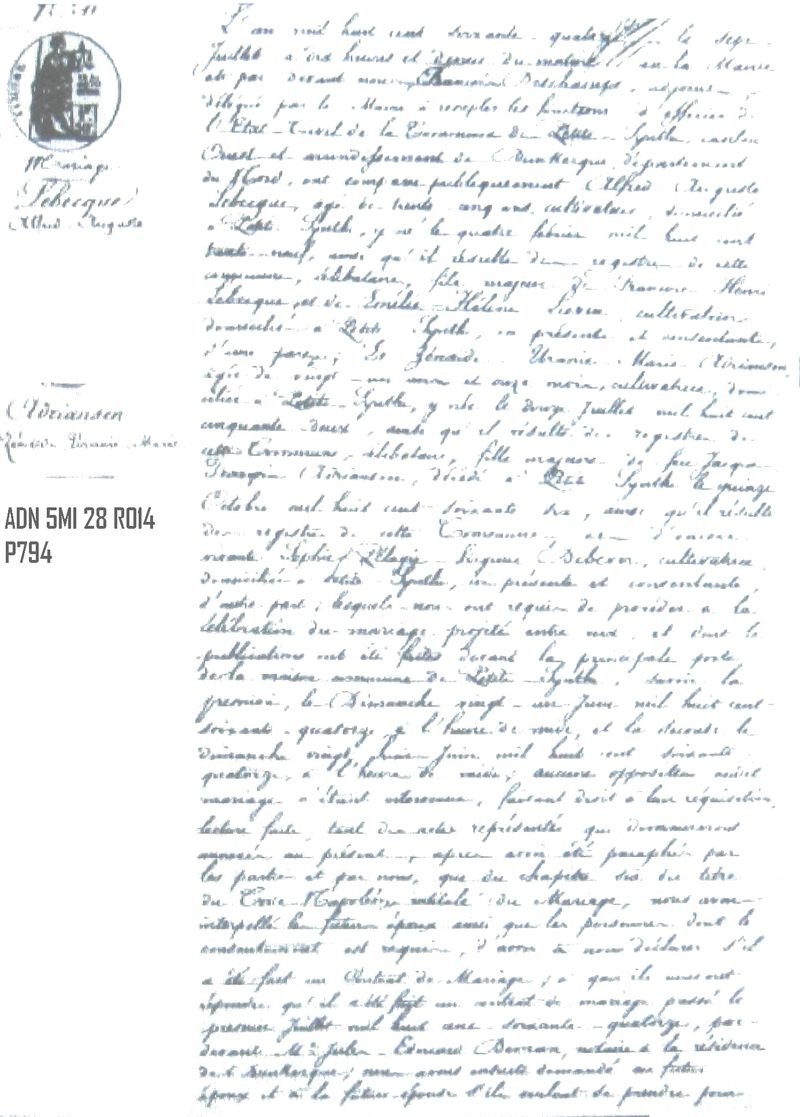 Mariage
Lebecque
Alfred Auguste
Adriansen
Zénaïde Uranie Marie
ADN 5MI 28 R014
P794
L'an mil huit cent soixante quatorze le sept
Juillet à dix heures et du matin en la Mairie
et par devant nous Deschamps, adjoint
délégué par le Maire à remplir les fonctions d'officier de
l'Etat-Civil de la Commune de Petite-Synthe, canton
Ouest et arrondissement de Dunkerque, département
du Nord, ont comparu publiquement Alfred Auguste
Lebecque, âgé de trente cinq ans, cultivateur, domicilié
à Petite Synthe, y né le quatre février mil huit cent
trente neuf, ainsi qu'il résulte des registres de cette
commune, célibataire, fils majeur de François Henri
Lebecque et de Emélie Hélène cultivatrice
domiciliés à Petite Synthe, ici présents et consentants,
d'une part; Et Zénaïde Uranie Marie Adriansen
âgée de vingt-un ans et onze mois, cultivatrice, domi
ciliée à Petite-Synthe, y née le douze Juillet mil huit cent
cinquante deux, ainsi qu'il résulte des registres de
cette Commune, célibataire, fille majeure de feu Jacques
François Adriansen, décédé à Petite Synthe le quinze
Octobre mil huit cent soixante six, ainsi qu'il résulte
des registres de cette Commune et d'encore
vivante Sophie cultivatrice
domiciliée à Petite Synthe, ici présente et consentante,
d'autre part; lesquels nous ont requis de procéder à la
célébration du mariage projeté entre eux, et dont les
publications ont été faites devant la principale porte
de la maison commune de Petite Synthe, savoir la
première, le Dimanche vingt-un Juin mil huit cent
soixante-quatorze, à l'heure de midi, et la seconde le
dimanche vingt huit Juin mil huit cent soixante
quatorze, à l'heure de midi; aucune opposition audit
mariage n'étant intervenue, faisant droit à leur réquisition,
lecture faite, tant des actes représentés qui demeureront
annexés au présent, après avoir été paraphés par
les parties et par nous, que du chapitre six du titre
du Code Napoléon intitulé du Mariage, nous avons
interpellé les futurs époux ainsi que les personnes dont le
consentement est requis, d'avoir à nous déclarer s'il
a été fait un Contrat de Mariage; à quoi ils nous ont
répondu qu'il a été fait un contrat de mariage passé le
premier Juillet mil huit cent soixante-quatorze, par
devant Me Jules Edouard notaire à la résidence
de Dunkerque; nous avons ensuite demandé au futur
époux et à la future épouse s'ils veulent se prendre pour